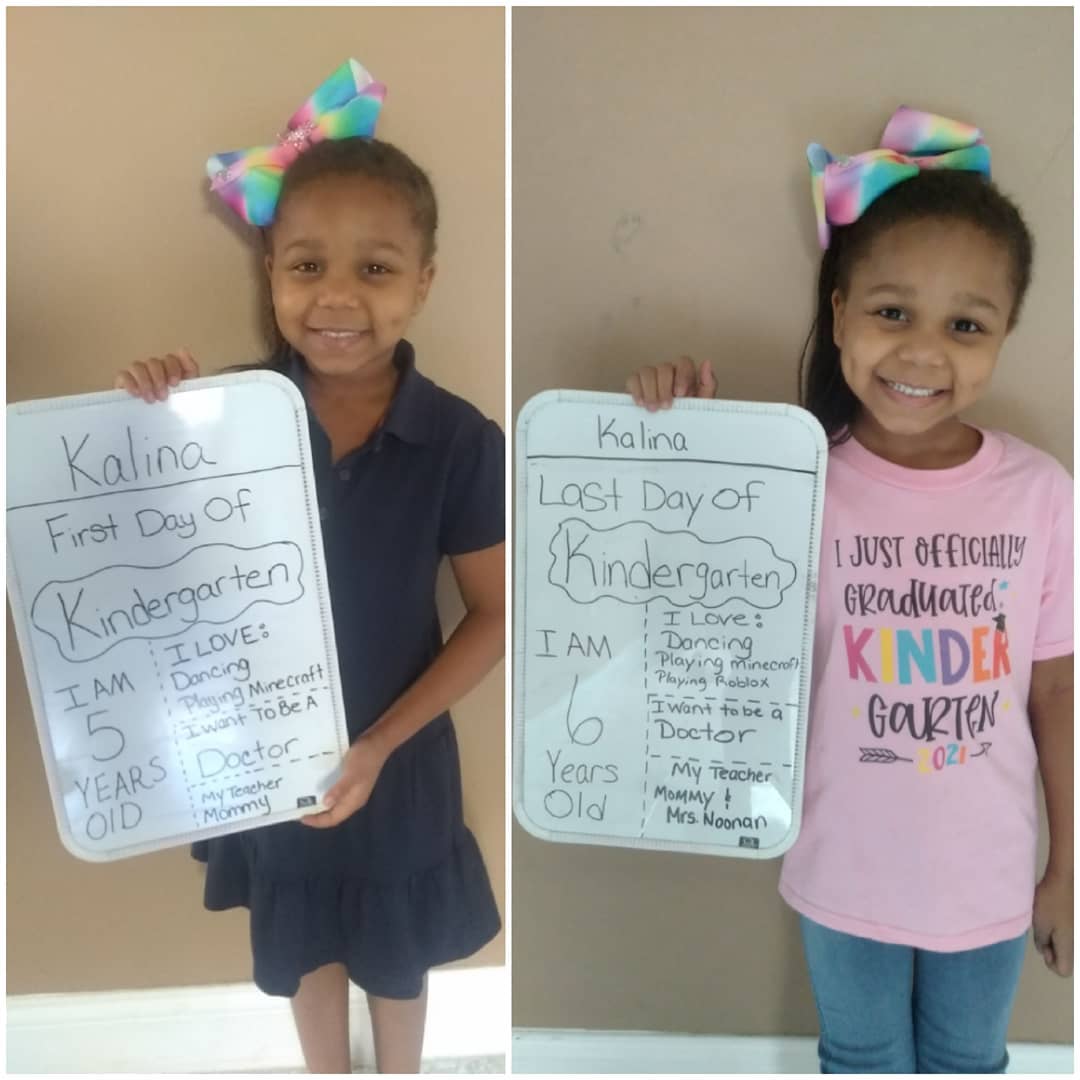 Kalina
First Day Of
Kindergarten
I AM
5
YEARS
OlD
I LOVE:
Dancing
Playing Minecraft
I want To Be A
Doctor
My Teacher
Mommy
Kalina
Last Day Of
Kindergarten
I AM
6
Years
Old
I Love:
Dancing
Playing minecraft
Playing Roblox
I want to be a
Doctor
My Teacher
Mommy &
Mrs. Noonan
I JUST OFFICIALLY
GRADUATED
KINDER
GARTEN
2021